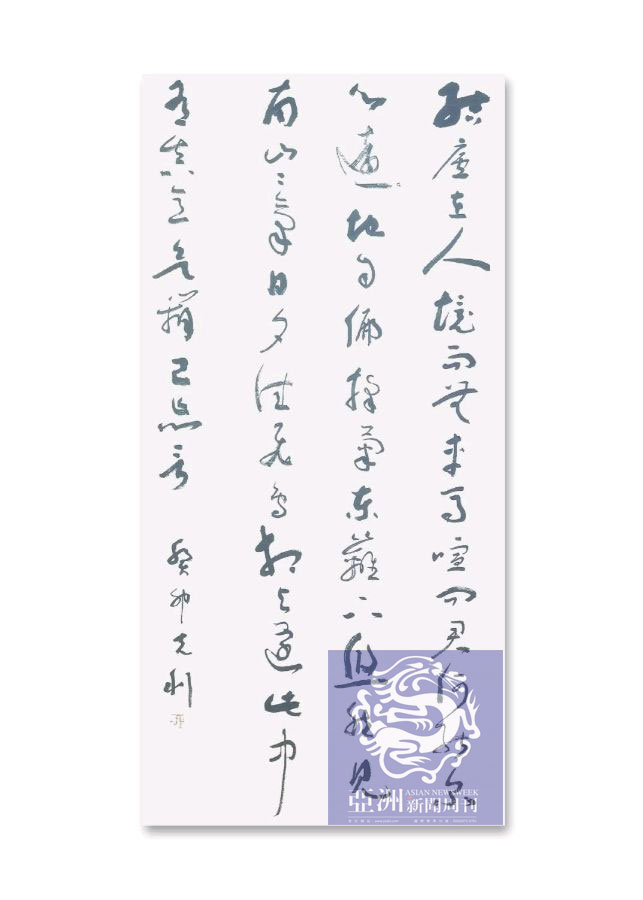 結廬在人境而無車馬喧問君何能爾
心遠地自偏採菊東籬下悠然見
南山〻氣日夕佳飛鳥相與還此中
有真意欲辯已忘言
癸卯
ASIAN NEWSWEEK
亞洲新聞周刊